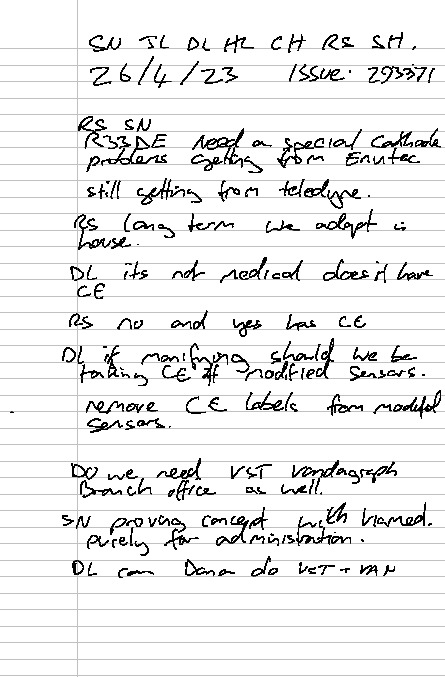 SN JL DL HL CH RS SH.
26/4/23 ISSUE: 293371
RS SN
R33DE need a special cathode
problems getting from Envitec
still getting from teledyne.
RS long term we adapt in
house.
DL its not medical doesn't have
CE
RS no and yes has CE
DL if modifying should we be
taking CE off modified sensors.
remove CE labels from modified
sensors.
DO we need VST Vandagraph
Branch office as well.
SN proving concept with Viamed.
purely for administration.
DL can Dana do VST + VAN